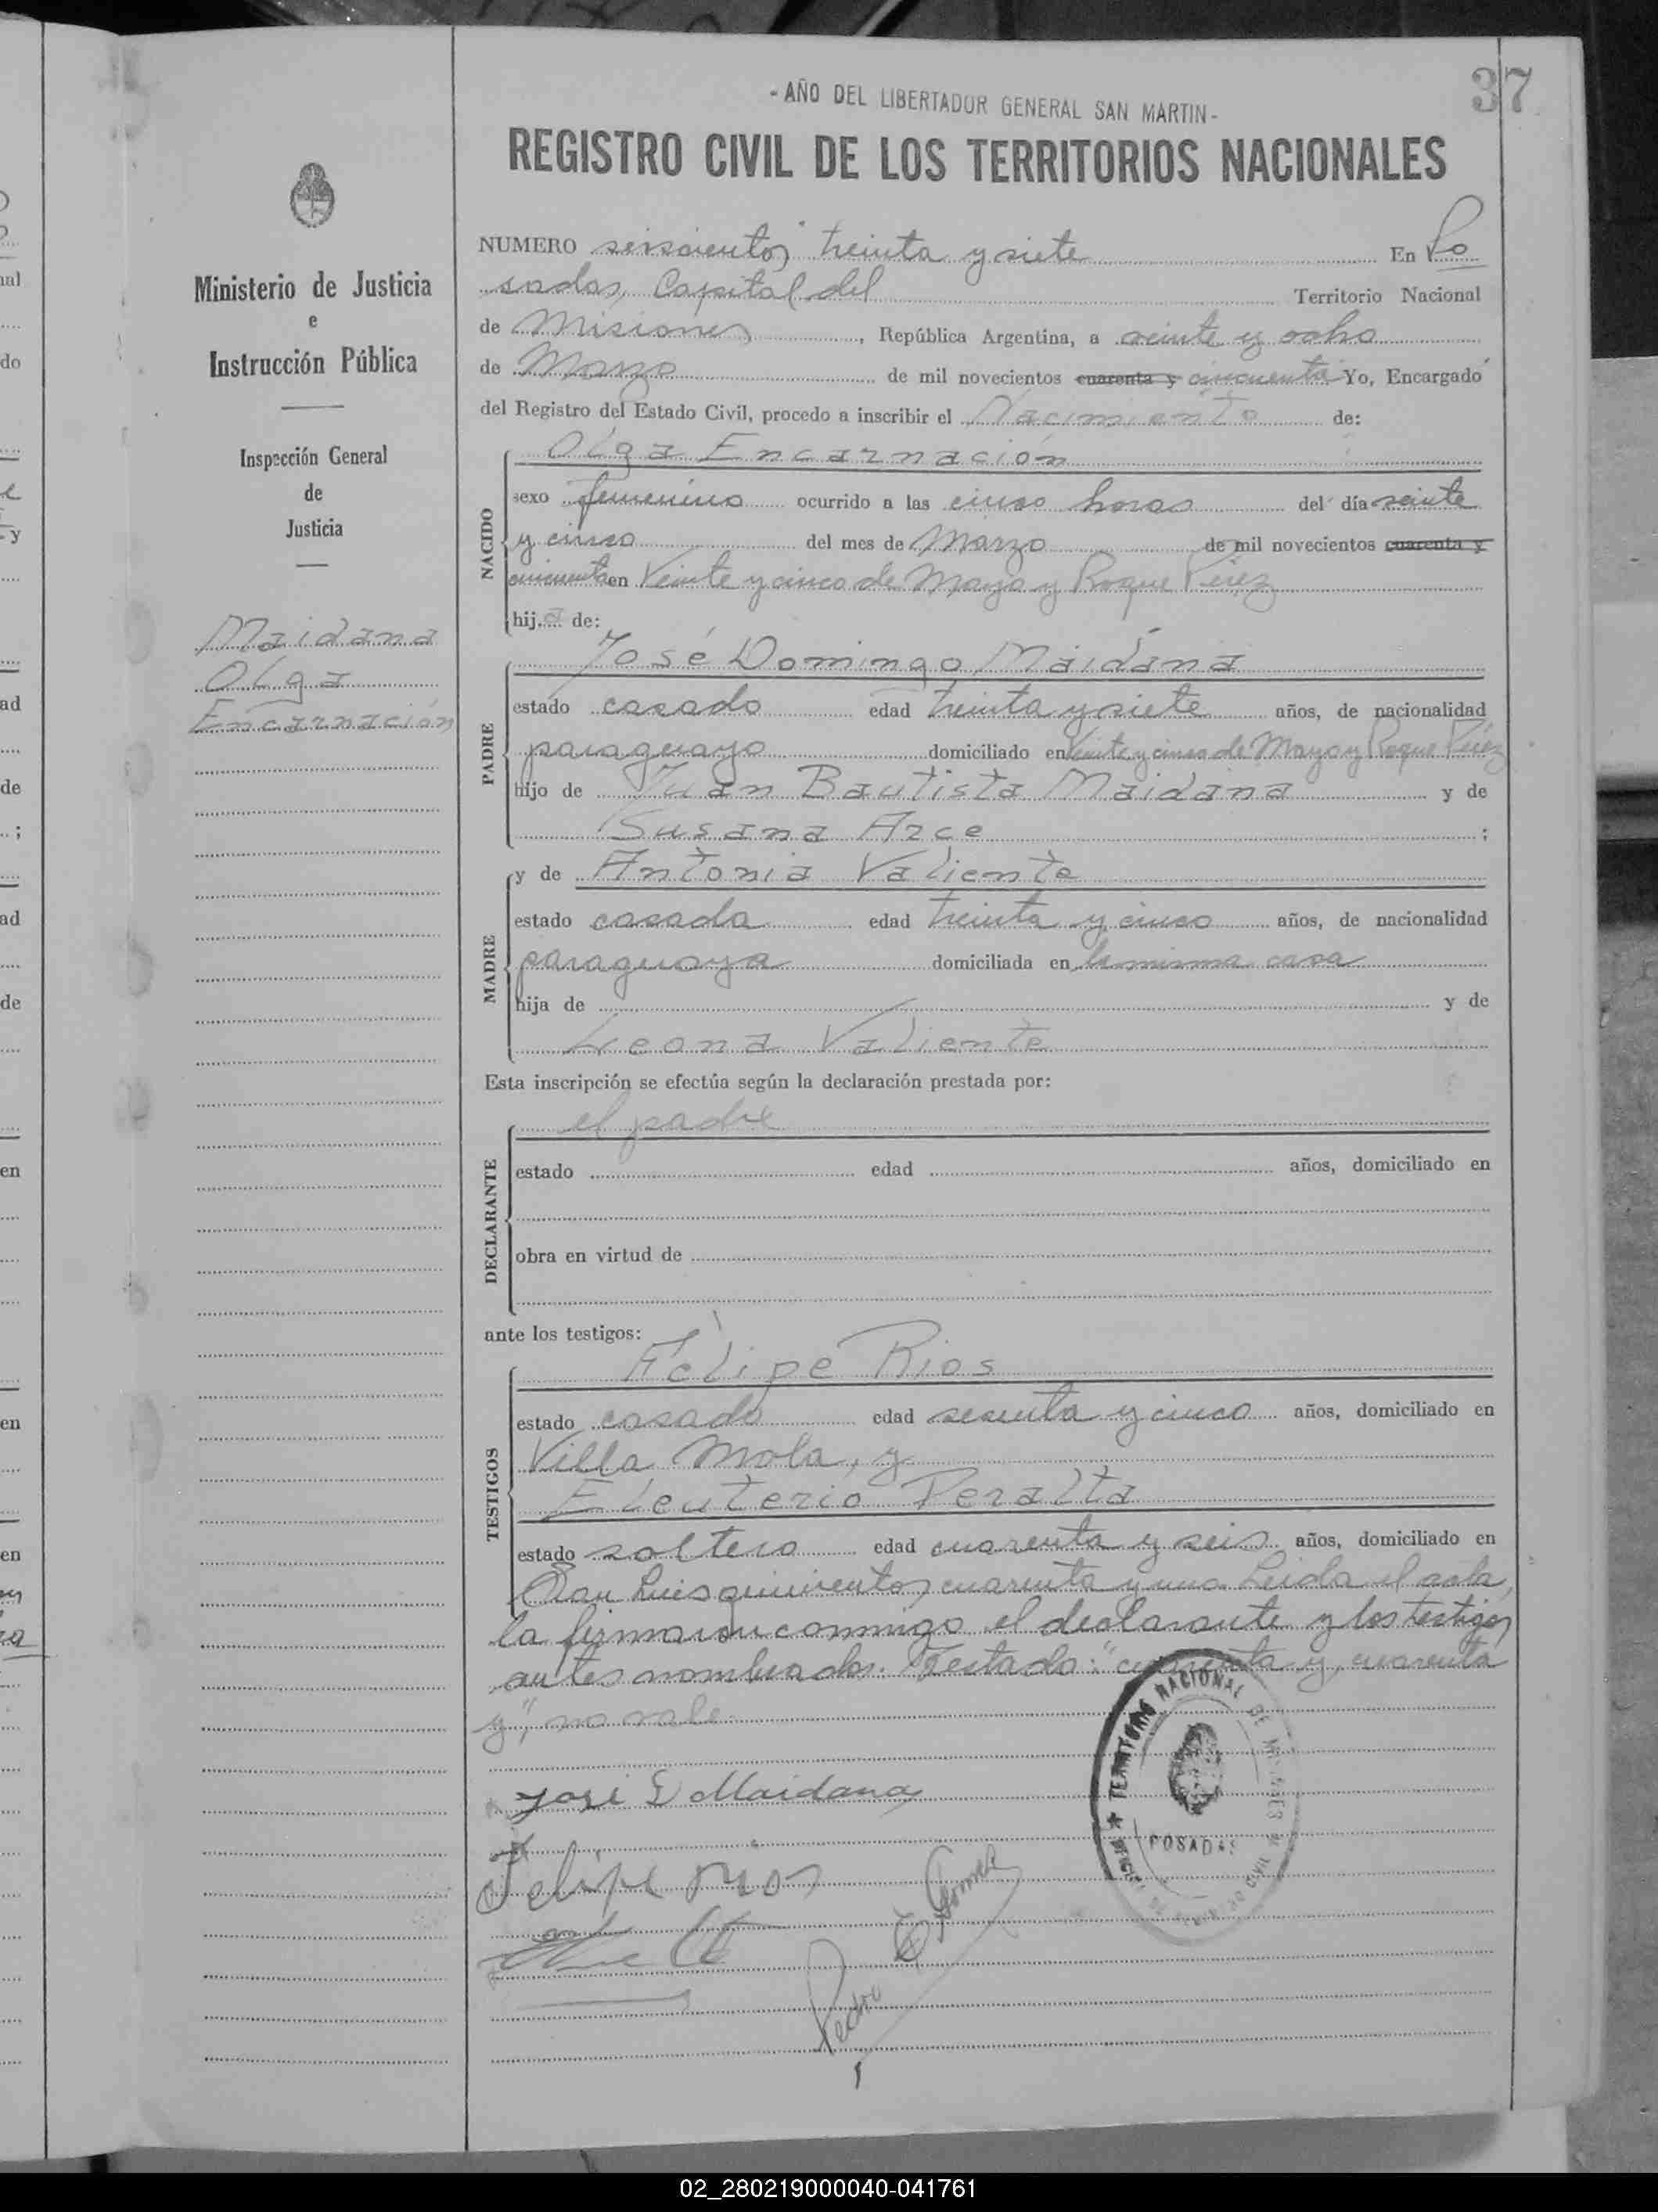 - AÑO DEL LIBERTADOR GENERAL SAN MARTIN -
37
REGISTRO CIVIL DE LOS TERRITORIOS NACIONALES
Ministerio de Justicia
e
Instrucción Pública
Inspección General
de
Justicia
Maidana
Olga
Encarnación
NUMERO seiscientos treinta y siete En Po
sadas, Capital del Territorio Nacional
de Misiones, República Argentina, a veinte y ocho
de Marzo de mil novecientos cuarenta y cincuenta Yo, Encargado
del Registro del Estado Civil, procedo a inscribir el Nacimiento de:
Olga Encarnación
NACIDO
sexo femenino ocurrido a las cinco horas del día veinte
y cinco del mes de Marzo de mil novecientos cuarenta y
cincuenta en Veinte y cinco de Mayo y Roque Pérez
hija de:
José Domingo Maidana
PADRE
estado casado edad treinta y siete años, de nacionalidad
paraguayo domiciliado en Veinte y cinco de Mayo y Roque Pérez
hijo de Juan Bautista Maidana y de
Susana Arce ;
y de Antonia Valiente
MADRE
estado casada edad treinta y cinco años, de nacionalidad
paraguaya domiciliada en la misma casa
hija de y de
Leona Valiente
Esta inscripción se efectúa según la declaración prestada por:
el padre
DECLARANTE
estado edad años, domiciliado en
obra en virtud de
ante los testigos:
Felipe Rios
TESTIGOS
estado casado edad sesenta y cinco años, domiciliado en
Villa Mola, y
Eleuterio Peralta
estado soltero edad cuarenta y seis años, domiciliado en
San Luis quinientos cuarenta y uno. Leida el acta,
la firmaron conmigo el declarante y los testigos
antes nombrados. Testado: "cuarenta y, cuarenta
y", no vale.
TERRITORIO NACIONAL DE MISIONES
POSADAS
José D Maidana
Felipe Rios
Pedro Gomez
02_280219000040-041761